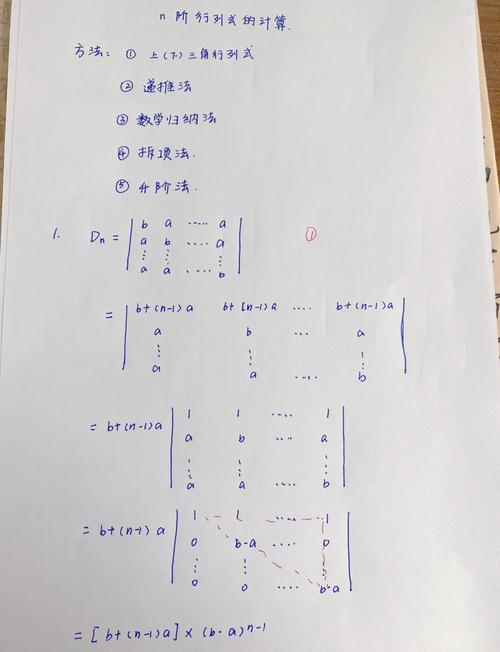 n 阶行列式的计算.
方法: ① 上(下)三角行列式
② 递推法
③ 数学归纳法
④ 拆项法.
⑤ 升阶法.
1. Dn = | b a ····· a | ①
| a b ····· a |
| ⋮ ⋮ ⋮ |
| a a ····· b |
= | b+(n-1)a b+(n-1)a ···· b+(n-1)a |
| a b ··· a |
| ⋮ ⋮ ⋮ |
| a a ···· b |
= b+(n-1)a | 1 1 ···· 1 |
| a b ···· a |
| ⋮ ⋮ ⋮ |
| a a ···· b |
= b+(n-1)a | 1 1 ···· 1 |
| 0 b-a ···· 0 |
| ⋮ ⋮ ⋮ |
| 0 0 ···· b-a |
= [b+(n-1)a] × (b-a)ⁿ⁻¹